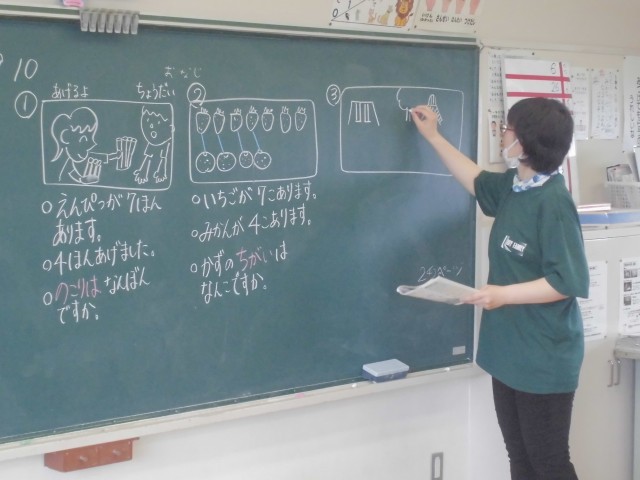 10
おなじ
① あげるよ ちょうだい
②
③
○えんぴつが7ほん
あります。
○4ほんあげました。
○のこりはなんぼん
ですか。
○いちごが7こあります。
○みかんが4こあります。
○かずのちがいは
なんこですか。